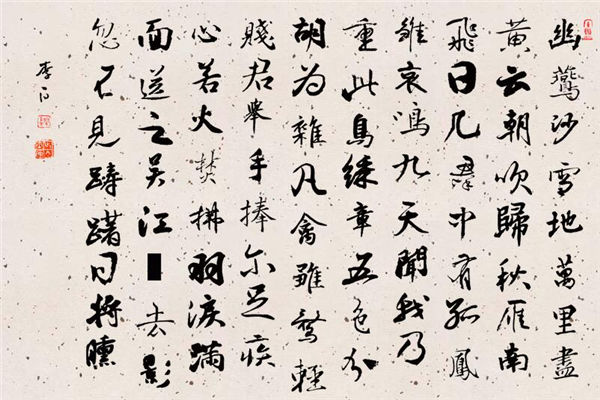 幽鷰沙雪地萬里盡
黄云朝吹歸秋雁南
飛日几羣中有孤鳳
雛哀鳴九天聞我乃
重此鳥綵章五色分
胡为雜凡禽雞鶩輕
賤君舉手捧尔足疾
心若火焚拂羽淚滿
面送之吴江■去影
忽不見躊躇日將曛
李白